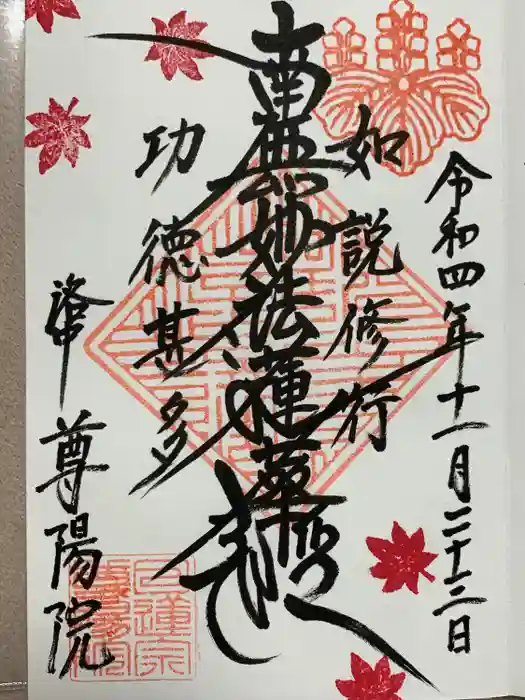 令和四年十一月二十二日
如説修行
南無妙法蓮華経
功徳甚多
洛中 尊陽院
日蓮宗